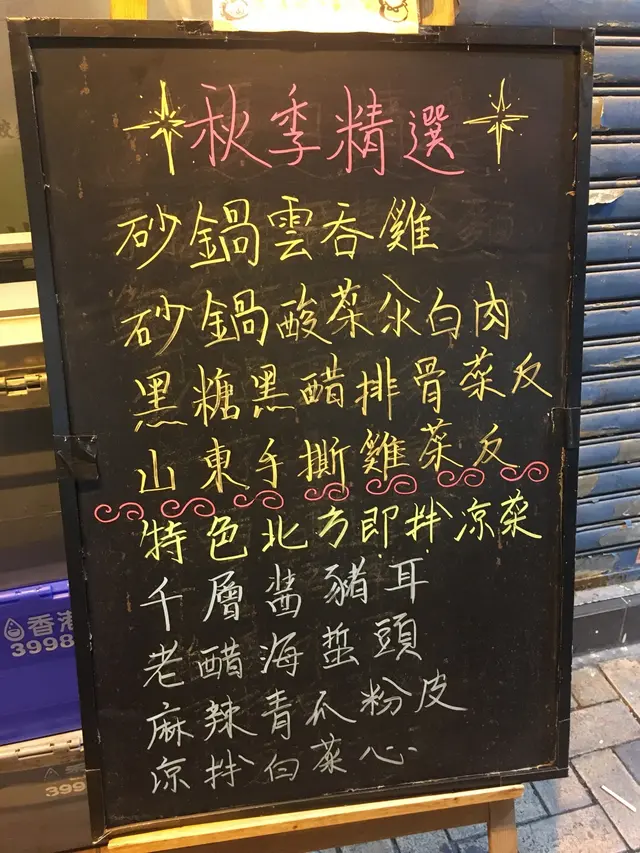 秋季精選
砂鍋雲吞雞
砂鍋酸菜汆白肉
黑糖黑醋排骨菜反
山東手撕雞菜反
特色北方即拌凉菜
千層醬豬耳
老醋海蜇頭
麻辣青瓜粉皮
凉拌白菜心
香港
3998
399